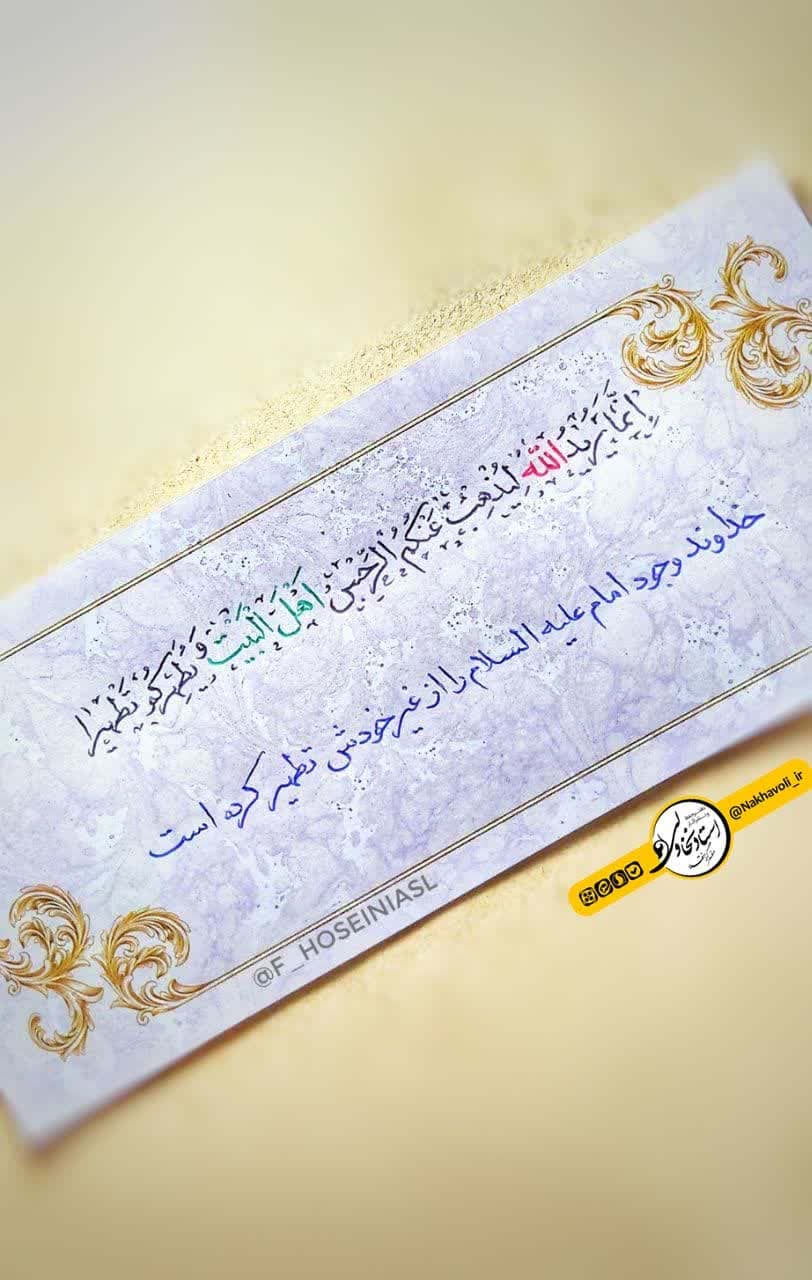 إِنَّمَا يُرِيدُ اللَّهُ لِيُذْهِبَ عَنْكُمُ الرِّجْسَ أَهْلَ الْبَيْتِ وَيُطَهِّرَكُمْ تَطْهِيرًا
خداوند وجود امام علیه السلام را از غیر خودش تطهیر کرده است
@F_HOSEINIASL
@Nakhavoli_ir
استاد نخاولی